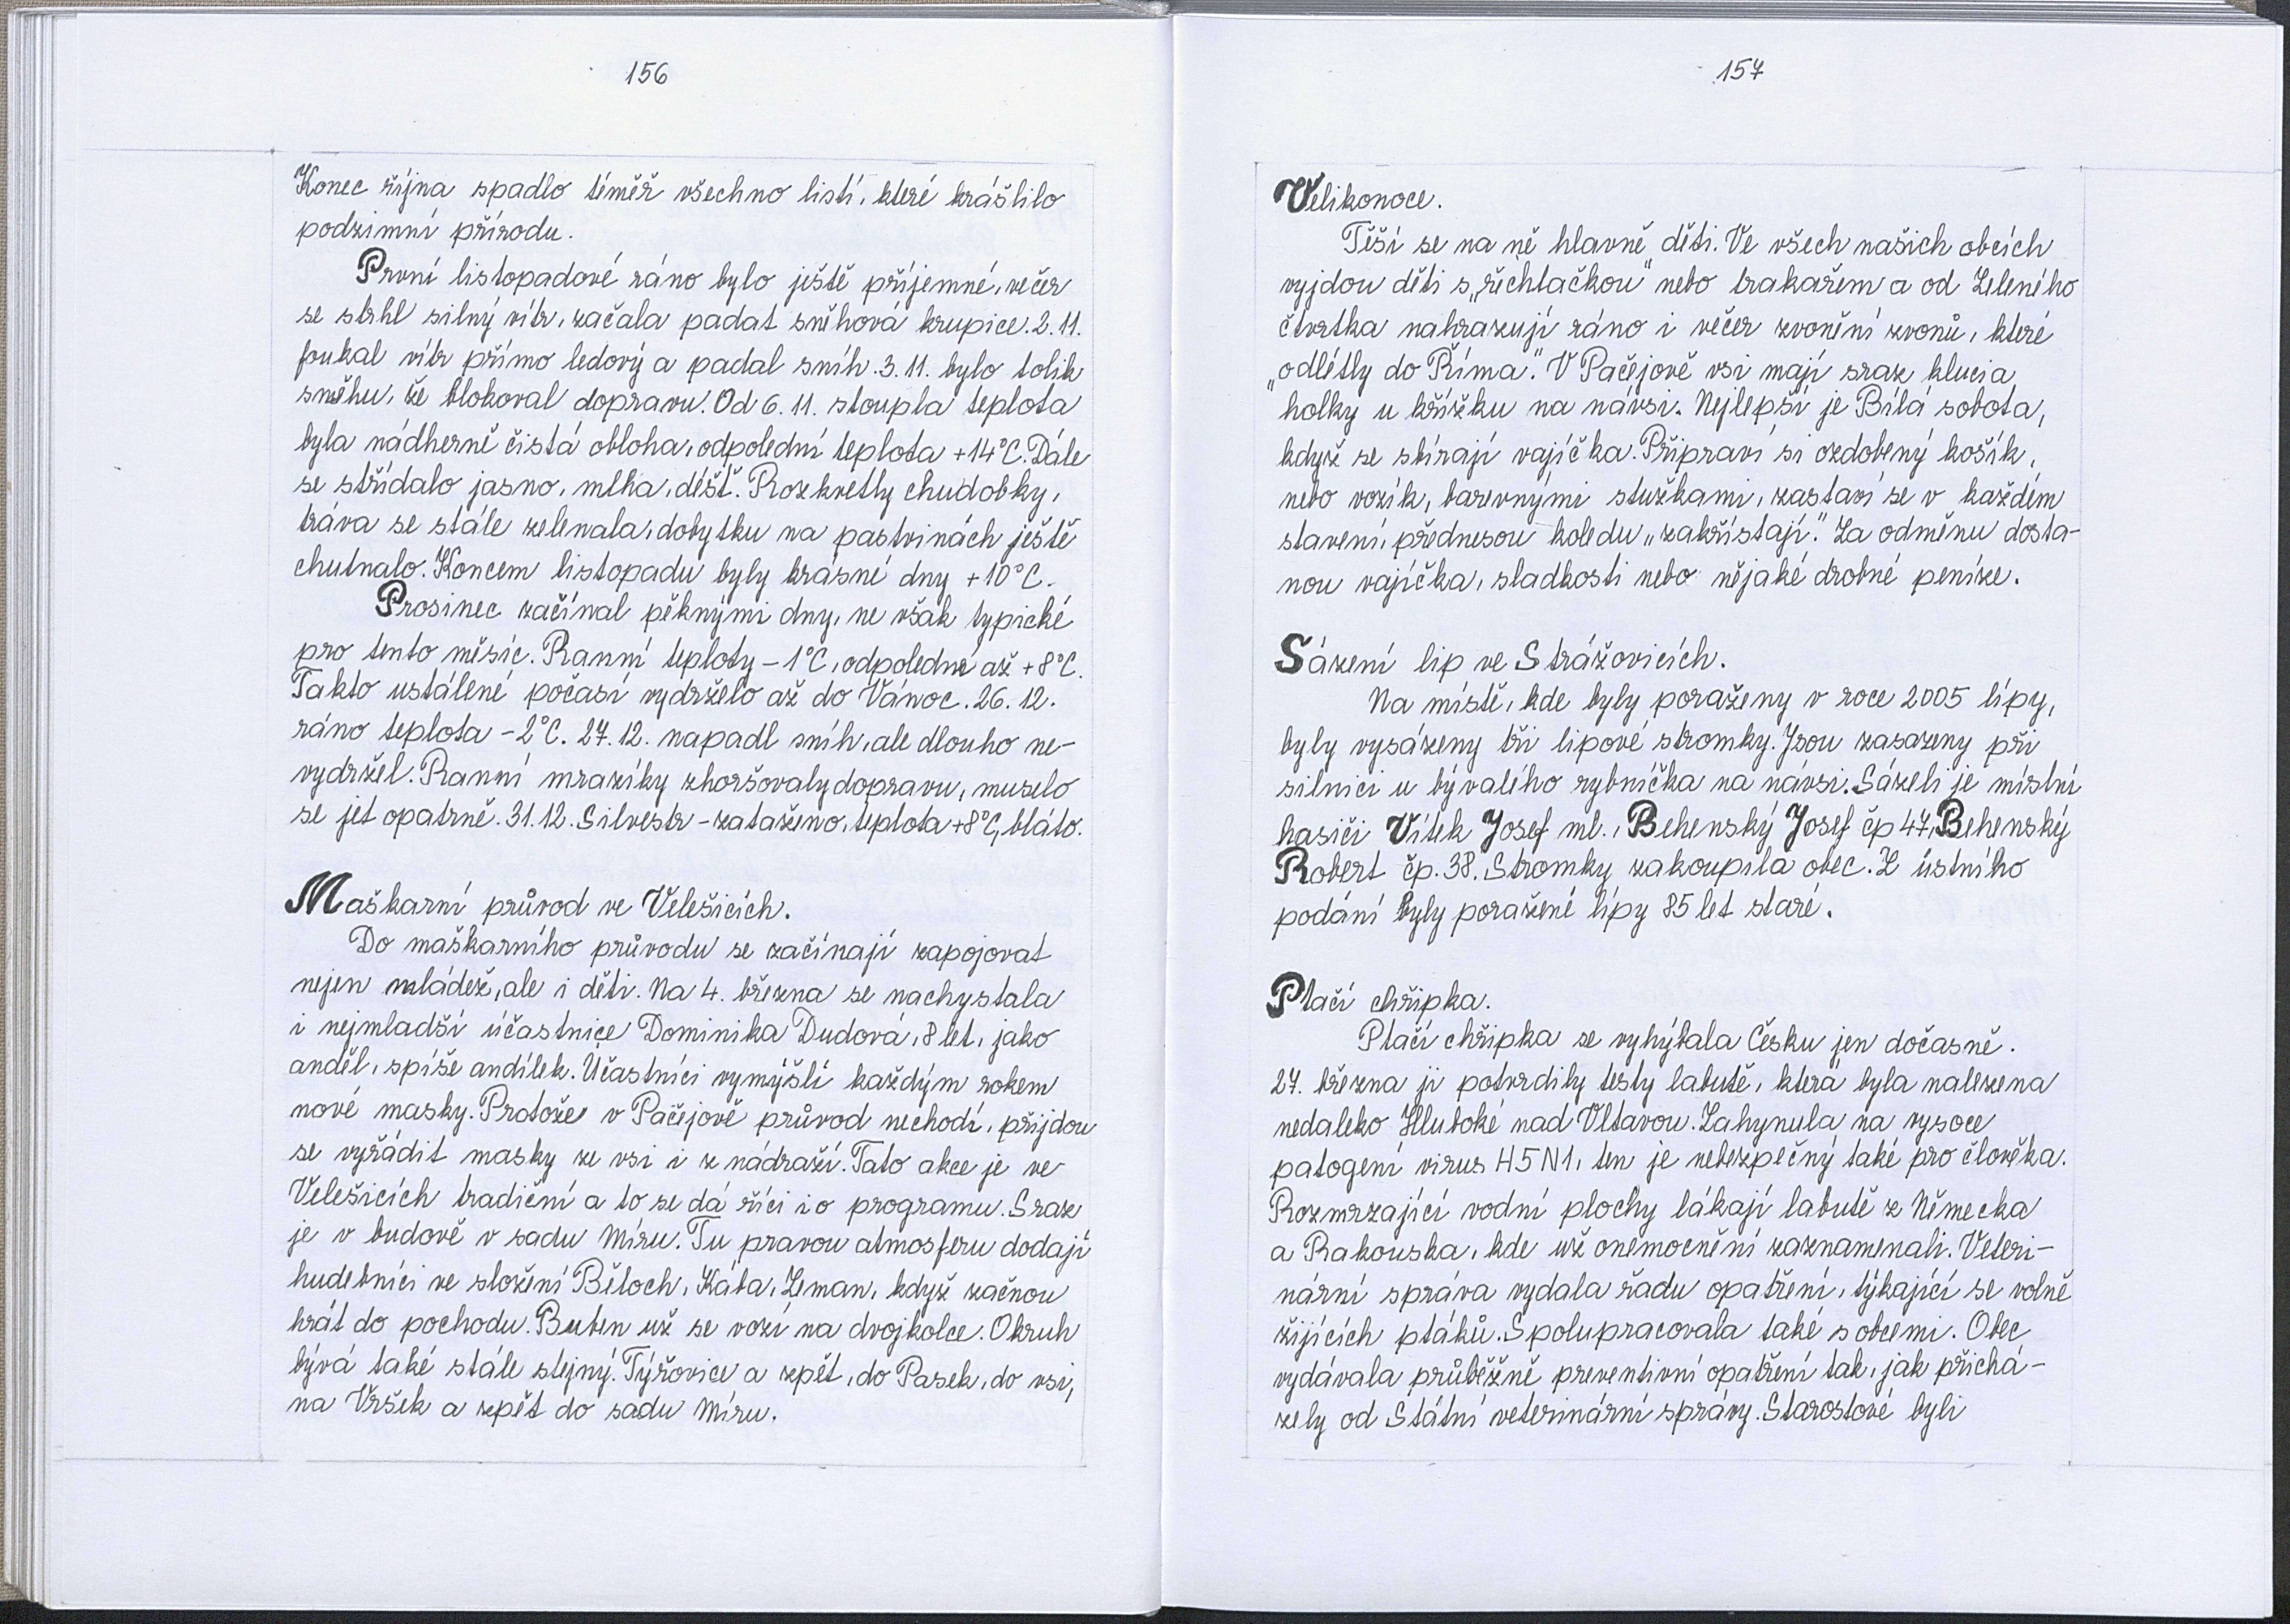 156
Konec října spadlo téměř všechno listí, které krášlilo
podzimní přírodu.
První listopadové ráno bylo ještě příjemné, večer
se strhl silný vítr, začala padat sněhová krupice. 2. 11.
foukal vítr přímo ledový a padal sníh. 3. 11. bylo tolik
sněhu, že blokoval dopravu. Od 6. 11. stoupla teplota
byla nádherně čistá obloha, odpolední teplota +14°C. Dále
se střídalo jasno, mlha, déšť. Rozkvetly chudobky,
tráva se stále zelenala, dobytku na pastvinách ještě
chutnalo. Koncem listopadu byly krásné dny +10°C.
Prosinec začínal pěknými dny, ne však typické
pro tento měsíc. Ranní teploty -1°C, odpolední až +8°C.
Takto ustálené počasí vydrželo až do Vánoc. 26. 12.
ráno teplota -2°C. 27. 12. napadl sníh, ale dlouho ne-
vydržel. Ranní mrazíky zhoršovaly dopravu, muselo
se jet opatrně. 31. 12. Silvestr - zataženo, teplota +8°C, bláto.
Maškarní průvod ve Velešicích.
Do maškarního průvodu se začínají zapojovat
nejen mládež, ale i děti. Na 4. března se nachystala
i nejmladší účastnice Dominika Dudová, 8 let, jako
anděl, spíše andílek. Účastníci vymýšlí každým rokem
nové masky. Protože v Pačejově průvod nechodí, přijdou
se vyřádit masky ze vsi i z nádraží. Tato akce je ve
Velešicích tradiční a to se dá říci i o programu. Sraz
je v budově v sadu Míru. Tu pravou atmosferu dodají
hudebníci ve složení Běloch, Káta, Zeman, když začnou
hrát do pochodu. Buben už se vozí na dvojkolce. Okruh
bývá také stále stejný. Týřovice a zpět, do Pasek, do vsi,
na Vršek a zpět do sadu Míru.
157
Velikonoce.
Těší se na ně hlavně děti. Ve všech našich obcích
vyjdou děti s „řechtačkou" nebo trakařem a od Zeleného
čtvrtka nahrazují ráno i večer zvonění zvonů, které
„odlétly do Říma". V Pačejově vsi mají sraz kluci a
holky u křížku na návsi. Nejlepší je Bílá sobota,
když se sbírají vajíčka. Připraví si ozdobený košík,
nebo vozík, barevnými stužkami, zastaví se v každém
stavení, přednesou koledu „zakřístají". Za odměnu dosta-
nou vajíčka, sladkosti nebo nějaké drobné peníze.
Sázení lip ve Strážovicích.
Na místě, kde byly poraženy v roce 2005 lípy,
byly vysázeny tři lipové stromky. Jsou zasazeny při
silnici u bývalého rybníčka na návsi. Sázeli je místní
hasiči Vítek Josef ml., Behenský Josef čp 47, Behenský
Robert čp. 38. Stromky zakoupila obec. Z ústního
podání byly poražené lípy 85 let staré.
Ptačí chřipka.
Ptačí chřipka se vyhýbala Česku jen dočasně.
27. března ji potvrdily testy labutě, která byla nalezena
nedaleko Hluboké nad Vltavou. Zahynula na vysoce
patogení virus H5N1, ten je nebezpečný také pro člověka.
Rozmrzající vodní plochy lákají labutě z Německa
a Rakouska, kde už onemocnění zaznamenali. Veteri-
nární správa vydala řadu opatření, týkající se volně
žijících ptáků. Spolupracovala také s obcemi. Obec
vydávala průběžně preventivní opatření tak, jak přichá-
zely od Státní veterinární správy. Starostové byli